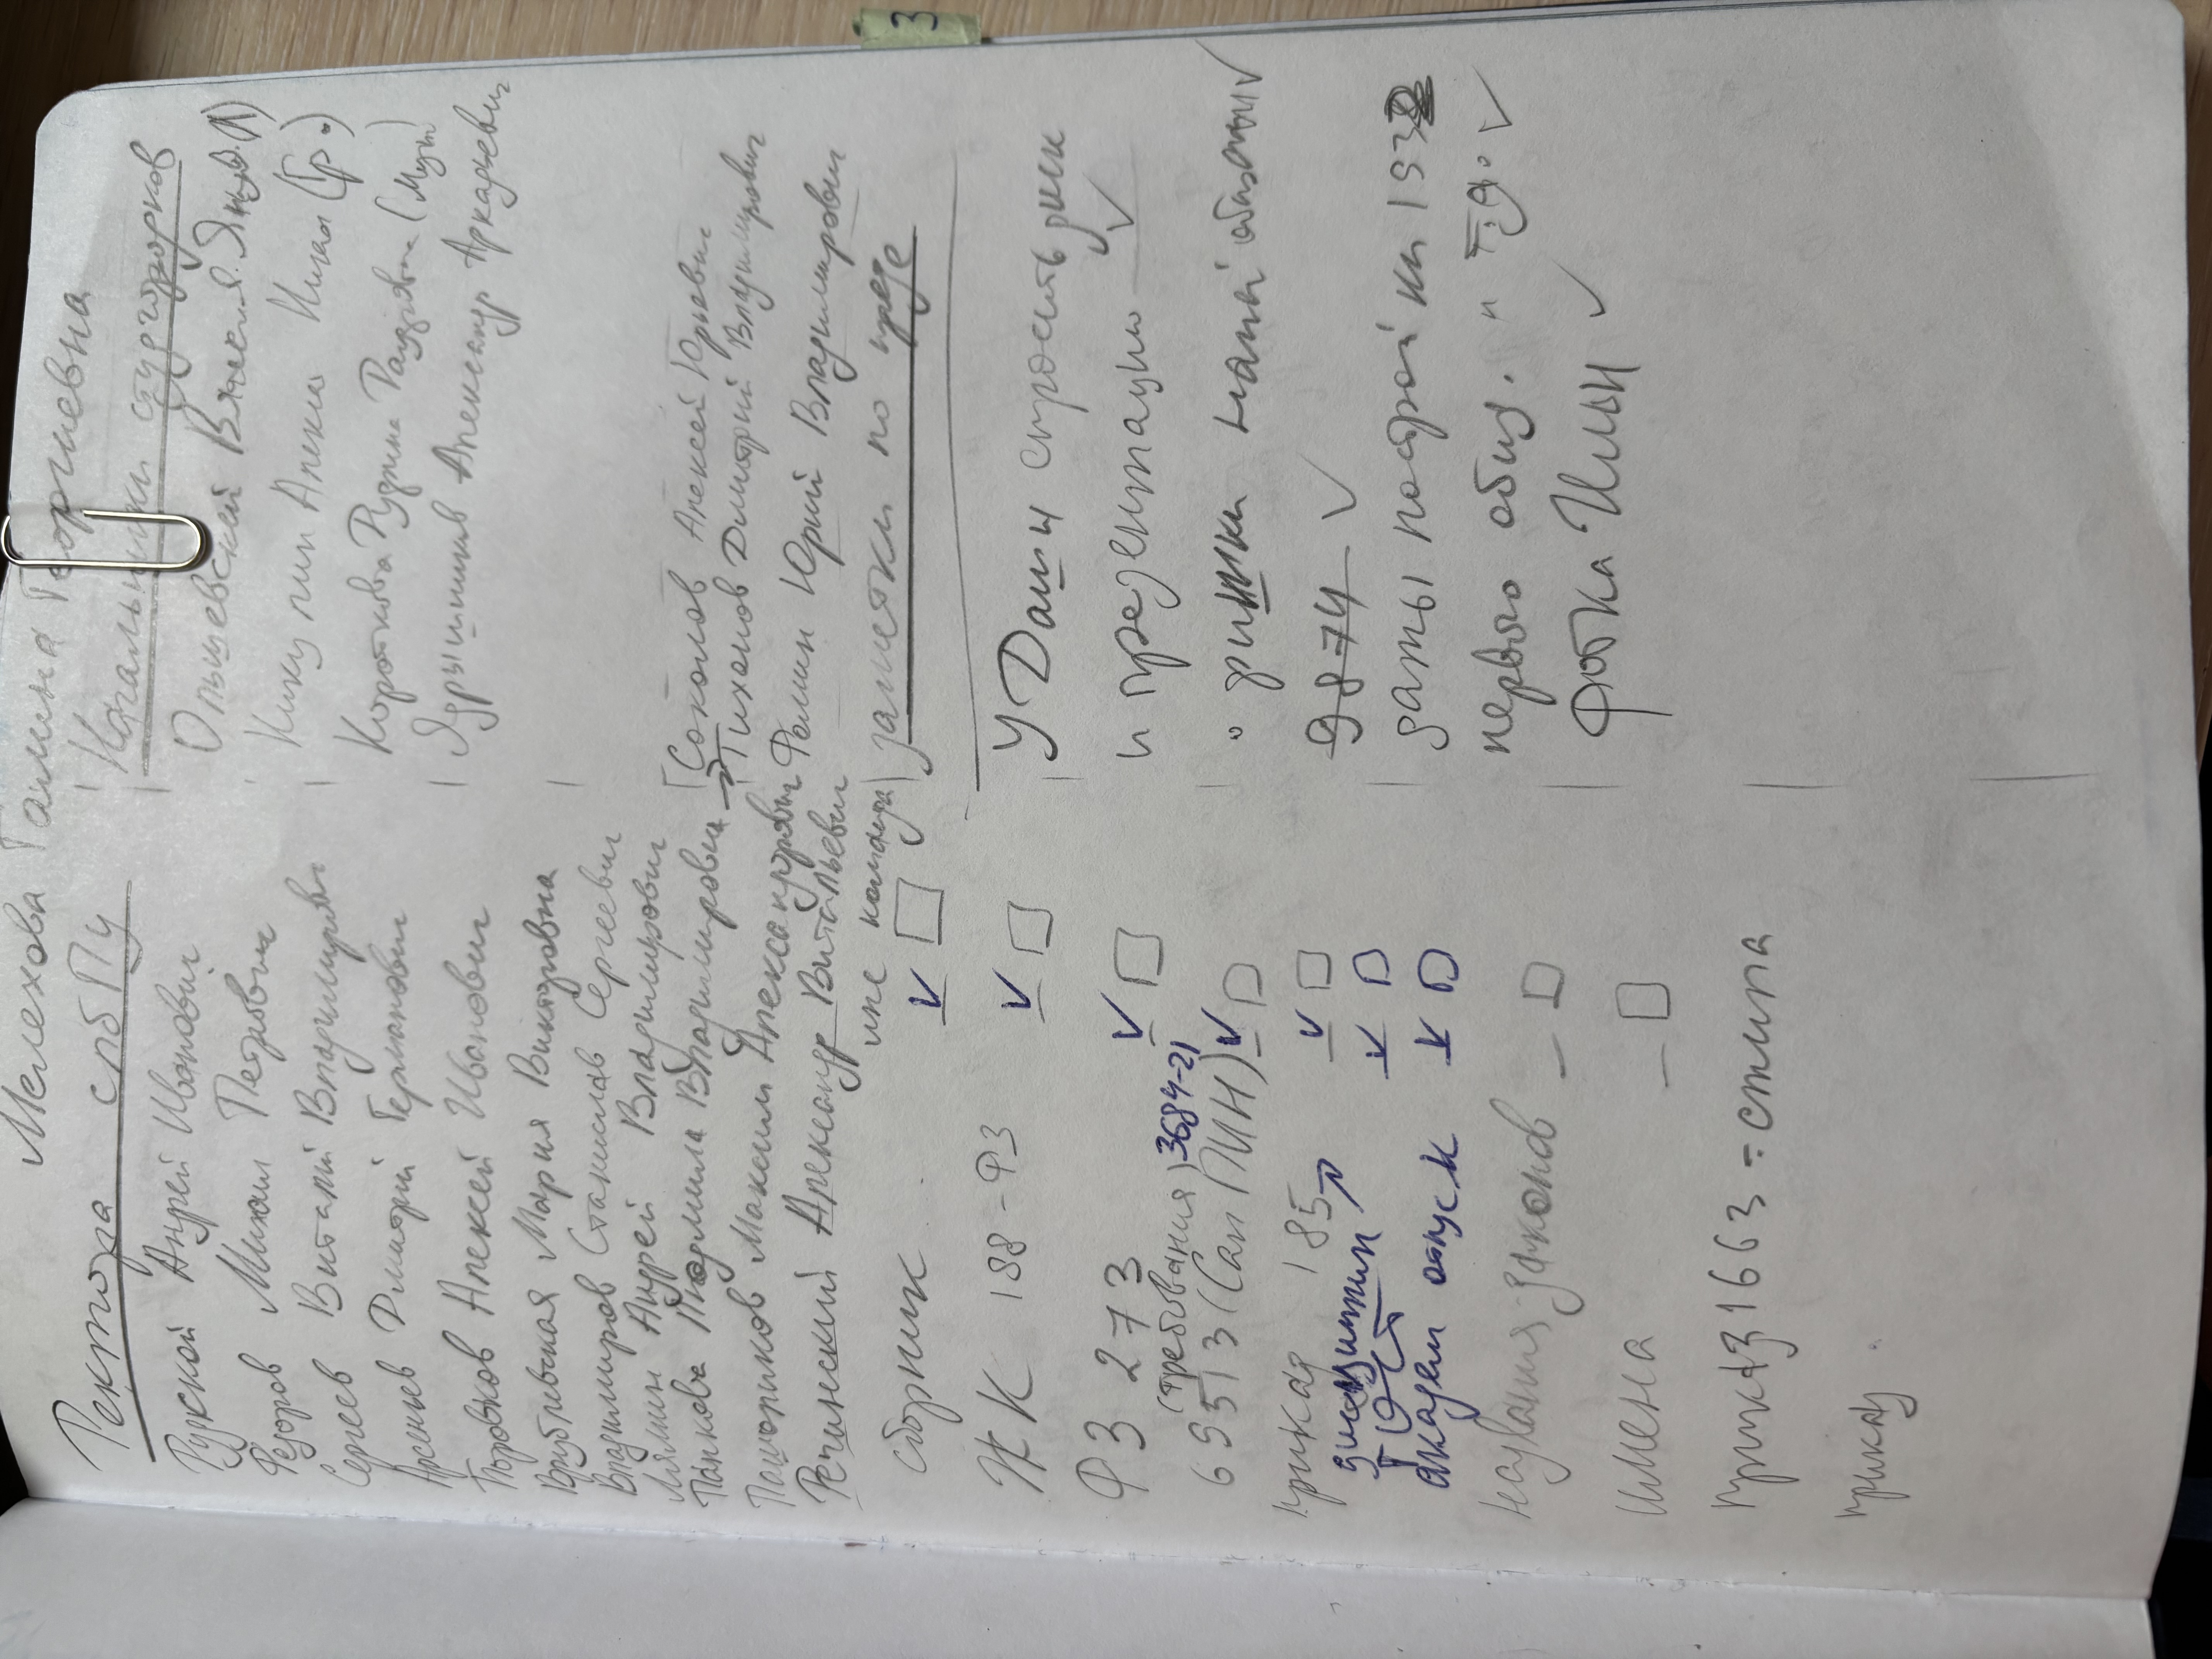 Мелехова Галина Георгиевна
Ректора СПбПУ
Рудской Андрей Иванович
Фёдоров Михаил Петрович
Сергеев Виталий Владимирович
Арсеньев Дмитрий Германович
Боровков Алексей Иванович
Врублевская Мария Викторовна
Владимиров Станислав Сергеевич
Лямин Андрей Владимирович
Панкова Людмила Владимировна
Пашоликов Максим Александрович
Речинский Александр Витальевич
мне команда
сборник
ЖК 188-ФЗ
ФЗ 273
(требования) 3684-21
69513 (СанПИН)
приказ 185
ГОСТ
академ отпуск
названия законов
имена
приказ 1663 = стипа
приказ
Начальники студгородков
Ольшевский (Л)
Никулин Алекса (Гр.)
Короткова Рудина (Муж)
Ядрышников Александр Аркадьевич
Соколов Алексей Юрьевич
→ Тихонов Дмитрий Владимирович
Фомин Юрий Владимирович
заметки по преде
У Даши спросить диск
и презентацию ✓
фишки ✓
9874 ✓
даты постройки 1932
первого общ. и т.д. ✓
фотка Ильи ✓
3